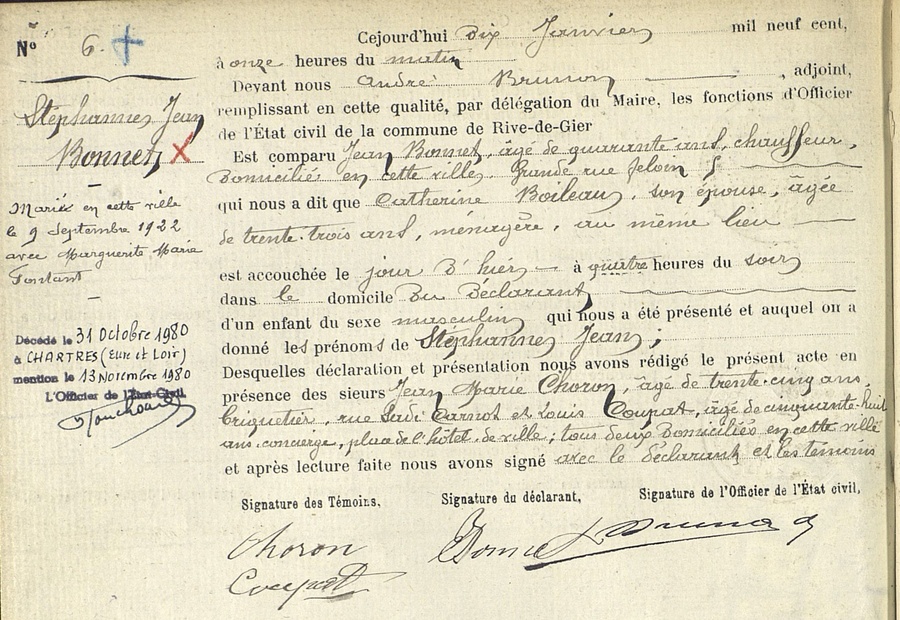 N° 6.
Stéphanne Jean
Bonnet X
Marié en cette ville
le 9 Septembre 1922
avec Marguerite Marie
Fontant
Décédé le 31 Octobre 1980
à CHARTRES (Eure et Loir)
mention le 13 Novembre 1980
L'Officier de l'Etat-Civil
Cejourd'hui dix Janvier mil neuf cent,
à onze heures du matin
Devant nous André Brunon, adjoint,
remplissant en cette qualité, par délégation du Maire, les fonctions d'Officier
de l'État civil de la commune de Rive-de-Gier
Est comparu Jean Bonnet, âgé de quarante ans, chauffeur,
domicilié en cette ville, Grande rue Feloin
qui nous a dit que Catherine Boileau, son épouse, âgée
de trente-trois ans, ménagère, au même lieu
est accouchée le jour d'hier à quatre heures du soir
dans le domicile du déclarant
d'un enfant du sexe masculin qui nous a été présenté et auquel on a
donné les prénoms de Stéphanne Jean;
Desquelles déclaration et présentation nous avons rédigé le présent acte en
présence des sieurs Jean Marie Choron, âgé de trente-cinq ans,
briquetier, rue Sadi Carnot et Louis Coupat, âgé de cinquante-huit
ans concierge, place de l'hôtel de ville; tous deux domiciliés en cette ville
et après lecture faite nous avons signé avec le déclarant et les témoins
Signature des Témoins, Signature du déclarant, Signature de l'Officier de l'État civil,
Choron Bonnet Brunon
Coupat